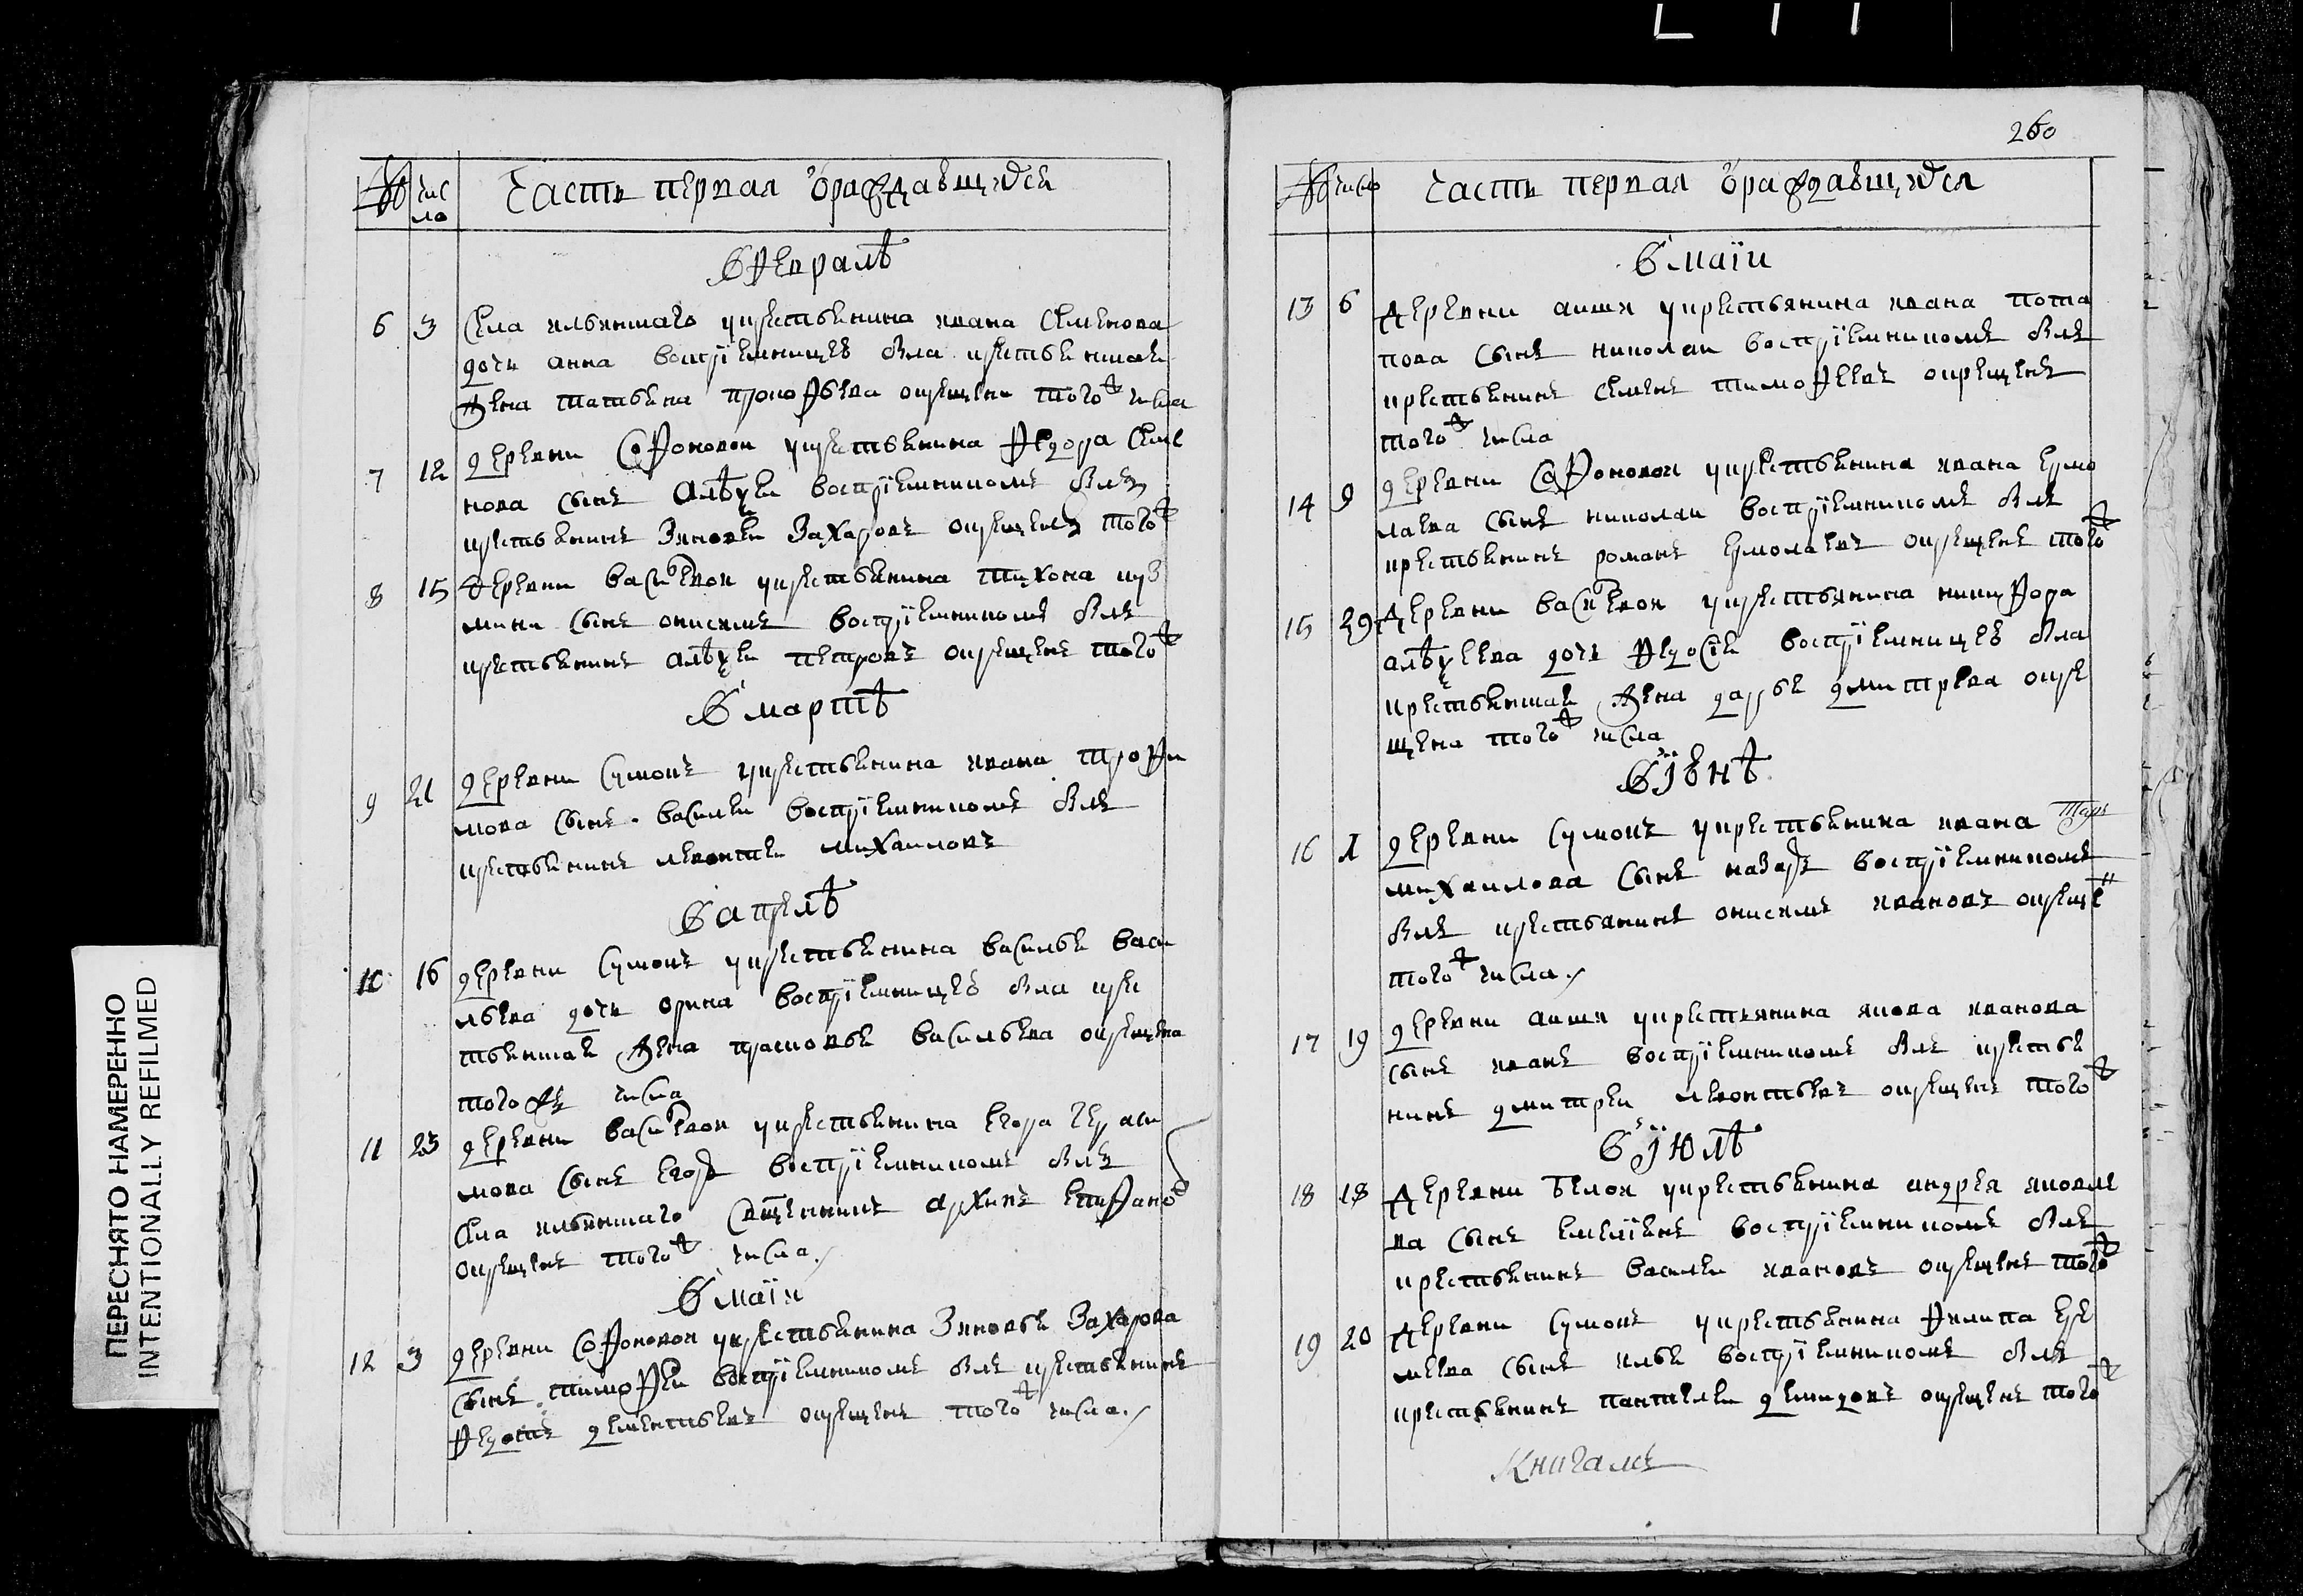 № чис
ло
Часть первая ѡраждавшихся
въ Февралѣ
6 3 Села ильинскаго укрестьянина ивана Семенова
дочь анна восприемницею была крестьянская
жена татьяна прокофьева окрещена того ж числа
7 12 деревни Софоновой укрестьянина Федора Семе
нова сынъ Алѣѯей восприемникомъ былъ
крестьянинъ Зиновей Захаровъ окрещенъ того ж
8 15 деревни васильевой укрестьянина тихона куз
мина сынъ онисимъ восприемникомъ былъ
крестьянинъ алѣѯей петровъ окрещенъ того ж
въ мартѣ
9 21 деревни Сумокъ укрестьянина ивана трофи
мова сынъ василей восприемникомъ былъ
крестьянинъ леонтей михаиловъ
въ апрелѣ
10 16 деревни Сумокъ укрестьянина василья васи
льева дочь орина восприемницею была кре
стьянская жена прасковья васильева окрещена
того же числа
11 23 деревни васильевой укрестьянина егора гераси
мова сынъ егоръ восприемникомъ былъ
Села ильинскаго священникъ архипъ епифанов
окрещенъ того ж числа
въ маїи
12 3 деревни Софоновой укрестьянина Зиновья Захарова
сынъ тимофей восприемникомъ былъ крестьянинъ
Федотъ дементьевъ окрещенъ того ж числа
260
№ число
Часть первая ѡраждавшихся
въ маїи
13 6 деревни укрестьянина ивана пота
пова сынъ николай восприемникомъ былъ
крестьянинъ Семенъ тимофеевъ окрещенъ
того ж числа
14 9 деревни Софоновой укрестьянина ивана ермо
лаева сынъ николай восприемникомъ былъ
крестьянинъ романъ ермолаевъ окрещенъ того ж
15 29 деревни васильевой укрестьянина никифора
алѣѯеева дочь Федосїя восприемницею была
крестьянская жена дарья дмитрева окре
щена того ж числа
въ їюнѣ
16 1 деревни Сумокъ укрестьянина ивана
михаилова сынъ назаръ восприемникомъ
былъ крестьянинъ онисимъ ивановъ окреще
того ж числа
17 19 деревни укрестьянина якова иванова
сынъ иванъ восприемникомъ былъ крестья
нинъ дмитрей леонтьевъ окрещенъ того ж
въ їюлѣ
18 18 деревни белой укрестьянина андрея яковле
ва сынъ емелїянъ восприемникомъ былъ
крестьянинъ василей ивановъ окрещенъ того ж
19 20 деревни Сумокъ укрестьянина Филипа ере
меева сынъ илья восприемникомъ былъ
крестьянинъ пантелей демидовъ окрещенъ того ж
Книгамъ
ПЕРЕСНЯТО НАМЕРЕННО
INTENTIONALLY REFILMED